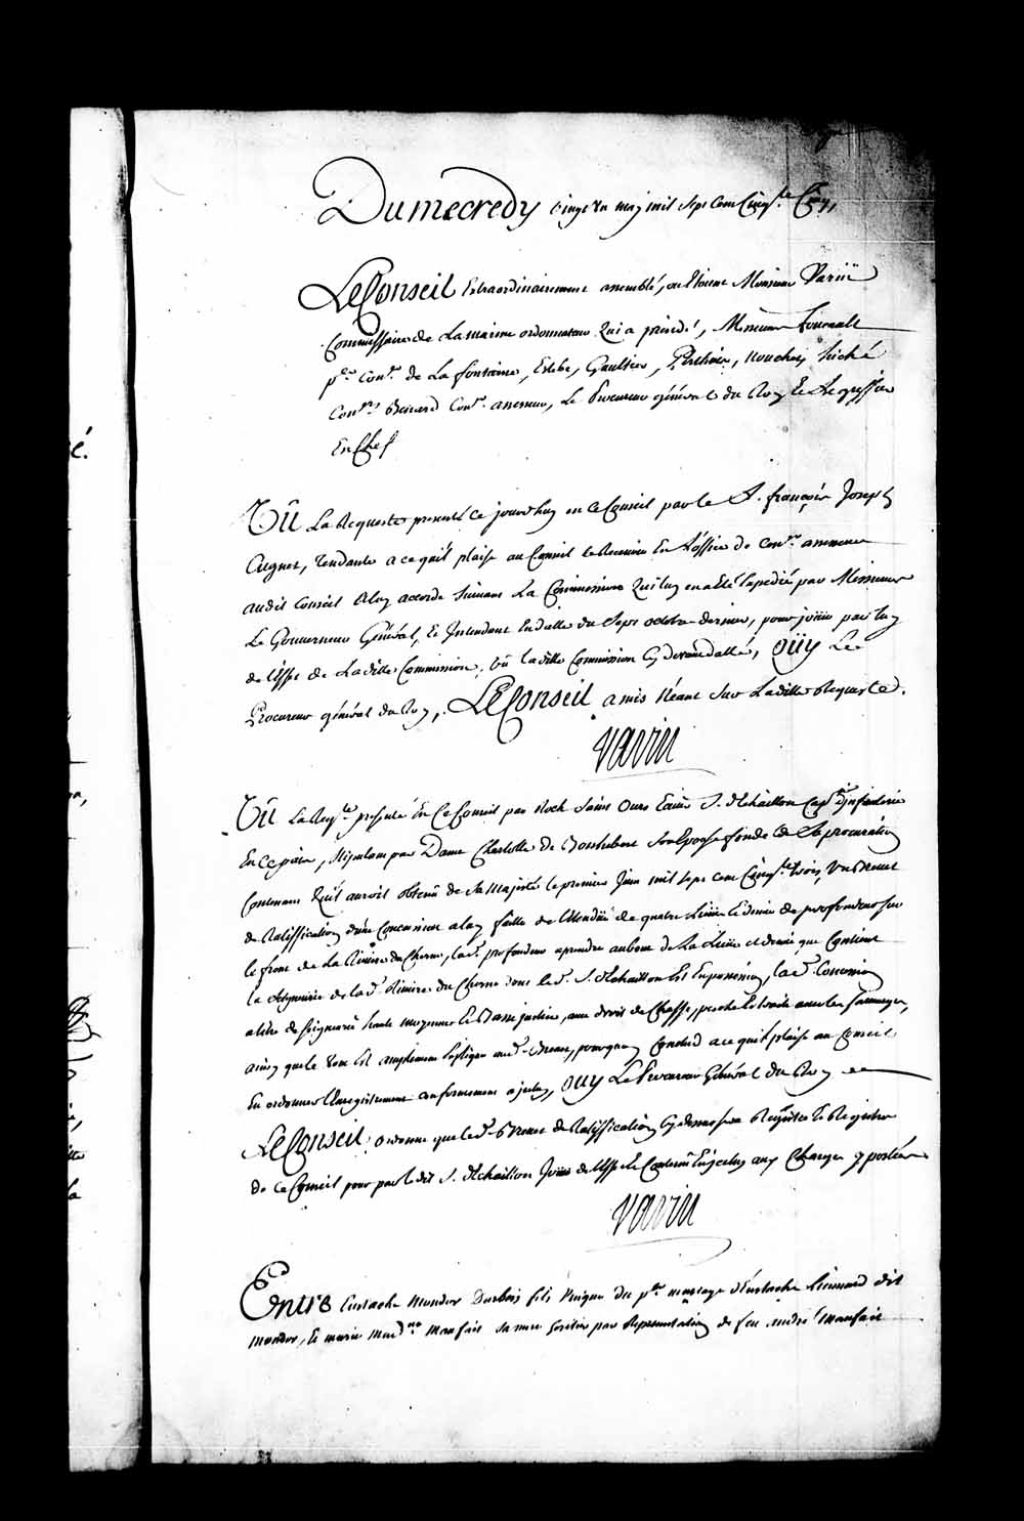 Du mecredy vingt un may mil sept cent Cinqte
Le Conseil Extraordinairement assemblé, ou Etoient Monsieur Varin
Commissaire de La marine ordonnateur Qui a présidé, Messieurs foucault
pr. Conr. de La fontaine, Estebe, Gaultier, nouchet, Guiché
Conrs. Benard Conr. assesseur, Le Procureur général du Roy Et Le greffier
En Chef
Vû La Requeste presenté ce jourdhuy en ce Conseil par le S. françois Joseph
Cugnet, tendante a ce quil plaise au Conseil le Recevoir En L'office de conr. assesseur
audit Conseil a luy accordé suivant La Commission Qui luy en a Eté Expediée par Messieurs
Le Gouverneur Général, Et Intendant En datte du sept octobre dernier, pour joüir par luy
de l'Effet de Laditte Commission, vû laditte Commission Cy devant dattée, oüy Le
Procureur général du Roy, Le Conseil a mis Néant sur Laditte Requeste.
Varin
Vû La Reqte. presenté En Ce Conseil par Roch Saint Ours Ecuier S. Dechaillon Capne. d'infanterie
En Ce païs, stipulant par Dame Charlotte de Son Epouse fondé de Sa procuration
Contenant Qu'il auroit obtenu de Sa Majesté le premier Juin mil sept cent Cinqte. trois, un Brevet
de Ratiffication d'une Concession a luy faitte de l'étendüe de quatre Lieües Et demie de profondeur sur
le front de La Riviere du Chesne, lad. profondeur a prendre au bout de La Lieüe et demie que Contient
la Seigneurie de lad. Riviere du Chesne dont led. S. Dechaillon Est En possession, lad. Concession
a titre de Seigneurie haute moyenne Et Basse justice, avec droit de Chasse, pesche Et traitte avec les Sauvages,
ainsy que le tout Est amplement Expliqué aud. Brevet, pourquoy Conclud a ce quil plaise au Conseil
En ordonner L'Enregistrement conformement a jceluy, ouy Le Procureur Général du Roy
Le Conseil ordonne que led. Brevet de Ratiffication Cy dessus sera Registré Es Registres
de ce Conseil pour par Ledit S. Dechaillon Joüir de l'Effet Et Contenu En jceluy aux Charges y portées
Varin
Entre Eustache Mondor Durbois fils Unique du pr. mariage d'Eustache dit
mondor, Et marie Madne. Manfait sa mere heritier par Representation de feu andré manfait